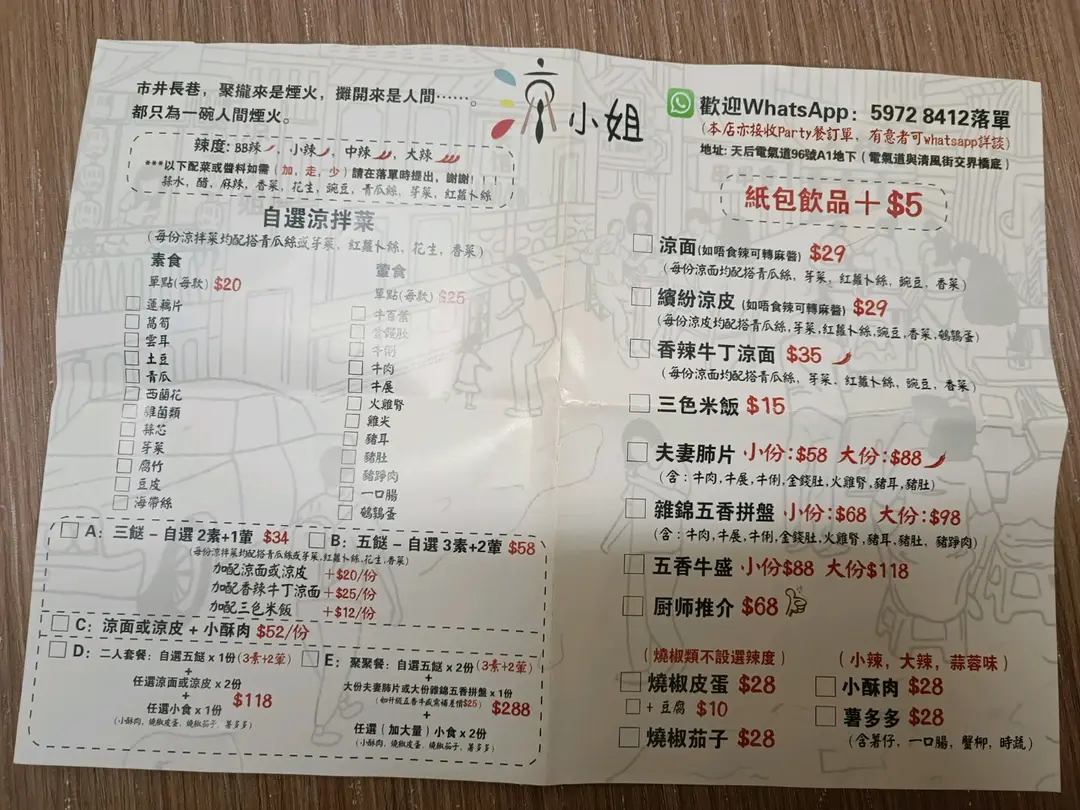 市井長巷，聚攏來是煙火，攤開來是人間……。
都只為一碗人間煙火。
辣度: BB辣 小辣 中辣 大辣
***以下配菜或醬料如需（加, 走, 少）請在落單時提出, 謝謝！！！
蒜水, 醋, 麻辣, 香菜, 花生, 豌豆, 青瓜絲, 芽菜, 紅蘿卜絲
自選涼拌菜
(每份涼拌菜均配搭青瓜絲或芽菜, 紅蘿卜絲, 花生, 香菜)
素食
單點(每款) $20
蓮藕片
萵筍
雲耳
土豆
青瓜
西蘭花
雜菌類
蒜芯
芽菜
腐竹
豆皮
海帶絲
葷食
單點(每款) $25
牛百葉
金錢肚
牛脷
牛肉
牛展
火雞腎
雞尖
豬耳
豬肚
豬踭肉
一口腸
鵪鶉蛋
A: 三餸 – 自選 2素+1葷 $34
B: 五餸 – 自選 3素+2葷 $58
(每份涼拌菜均配搭青瓜絲或芽菜,紅蘿卜絲,花生,香菜)
加配涼面或涼皮 +$20/份
加配香辣牛丁涼面 +$25/份
加配三色米飯 +$12/份
C: 涼面或涼皮 + 小酥肉 $52/份
D: 二人套餐: 自選五餸 x 1份 (3素+2葷)
+
任選涼面或涼皮 x 2份
+
任選小食 x 1份
(小酥肉, 燒椒皮蛋, 燒椒茄子, 薯多多)
$118
E: 聚聚餐: 自選五餸 x 2份 (3素+2葷)
+
大份夫妻肺片或大份雜錦五香拼盤 x 1份
(如升級五香牛盛需補差價$25)
+
任選（加大量）小食 x 2份
(小酥肉, 燒椒皮蛋, 燒椒茄子, 薯多多)
$288
涼小姐
歡迎WhatsApp: 5972 8412落單
(本店亦接收Party餐訂單, 有意者可whatsapp詳談)
地址: 天后電氣道96號A1地下（電氣道與清風街交界橋底）
紙包飲品＋$5
涼面(如唔食辣可轉麻醬) $29
(每份涼面均配搭青瓜絲, 芽菜, 紅蘿卜絲, 豌豆, 香菜)
繽紛涼皮 (如唔食辣可轉麻醬) $29
(每份涼皮均配搭青瓜絲,芽菜,紅蘿卜絲,豌豆,香菜,鵪鶉蛋)
香辣牛丁涼面 $35
(每份涼面均配搭青瓜絲, 芽菜, 紅蘿卜絲, 豌豆, 香菜)
三色米飯 $15
夫妻肺片 小份:$58 大份:$88
(含: 牛肉,牛展,牛脷,金錢肚,火雞腎,豬耳,豬肚)
雜錦五香拼盤 小份:$68 大份:$98
(含: 牛肉,牛展,牛脷,金錢肚,火雞腎,豬耳,豬肚, 豬踭肉)
五香牛盛 小份$88 大份$118
厨师推介 $68
(燒椒類不設選辣度)
燒椒皮蛋 $28
+ 豆腐 $10
燒椒茄子 $28
(小辣, 大辣, 蒜蓉味)
小酥肉 $28
薯多多 $28
(含薯仔, 一口腸, 蟹柳, 時蔬)